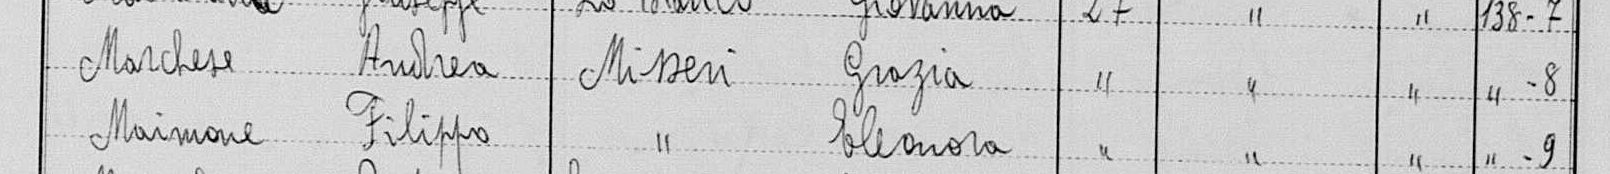 Giuseppe Giovanna 27 " " 138-7
Marchese Andrea Misseri Grazia " " " " -8
Maimone Filippo " Eleonora " " " " -9